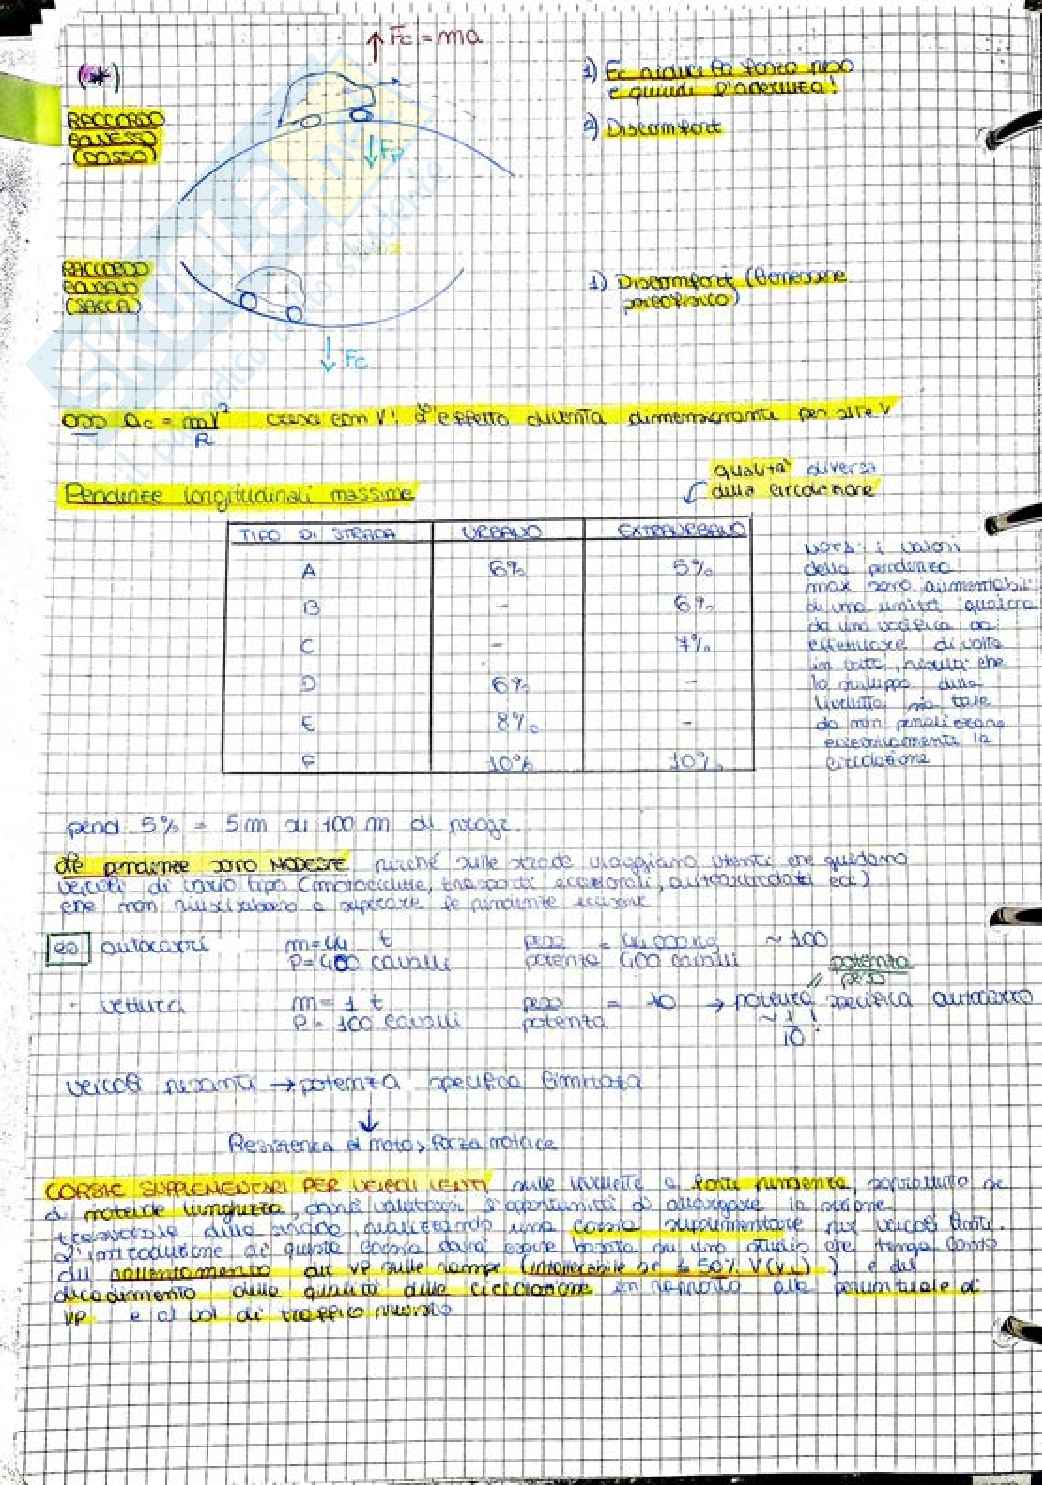 Fc = ma
(*)
RACCORDO
CONVESSO
(DOSSO)
1) Fc riduce la forza peso
e quindi l'aderenza!
2) Discomfort
Fp
RACCORDO
CONCAVO
(SACCA)
1) Discomfort (Benessere
psicofisico)
Fc
oss ac = mV²/R cresce con V! L'effetto diventa dimensionante per alte V
Pendenze longitudinali massime
qualità diversa
della circolazione
TIPO DI STRADA URBANO EXTRAURBANO
A 6% 5%
B - 6%
C - 7%
D 6% -
E 8% -
F 10% 10%
NOTA: i valori
della pendenza
max sono aumentabili
di una unità qualora
da una verifica da
effettuare di volta
in volta, risulti che
lo sviluppo della
livelletta sia tale
da non penalizzare
eccessivamente la
circolazione
pend 5% = 5m su 100 m di proiez.
Le pendenze sono MODESTE perché sulle strade viaggiano utenti che guidano
veicoli di vario tipo (motociclette, trasporti eccezionali, autoarticolati ecc)
che non riuscirebbero a superare le pendenze eccessive
es autocarri m=44 t peso = 44 000 kg ~ 100
P=400 cavalli potenza 400 cavalli potenza
peso
- vettura m = 1 t peso = 10 → potenza specifica autocarro
P = 100 cavalli potenza ~ 1/10 !
veicoli pesanti → potenza specifica limitata
↓
Resistenza al moto > forza motrice
CORSIE SUPPLEMENTARI PER VEICOLI LENTI sulle livellette a forte pendenza, soprattutto se
di notevole lunghezza, andrà valutata l'opportunità di allargare la sezione
trasversale della strada, realizzando una corsia supplementare per veicoli lenti.
L'introduzione di questa corsia dovrà essere basata su uno studio che tenga conto
del rallentamento dei VP sulle rampe (intollerabile se ≤ 50% V(VL)) e del
decadimento della qualità della circolazione in rapporto alla percentuale di
VP e al vol di traffico previsto